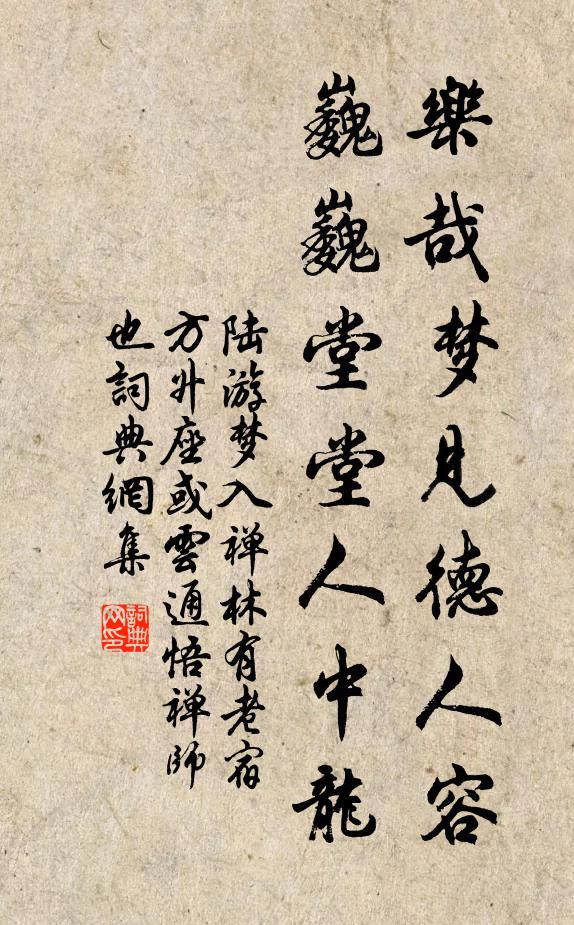 樂哉梦見德人容
巍巍堂堂人中龍
陆游梦入禅林有老宿
方升座或雲通悟禅師
也詞典網集
詞典网印